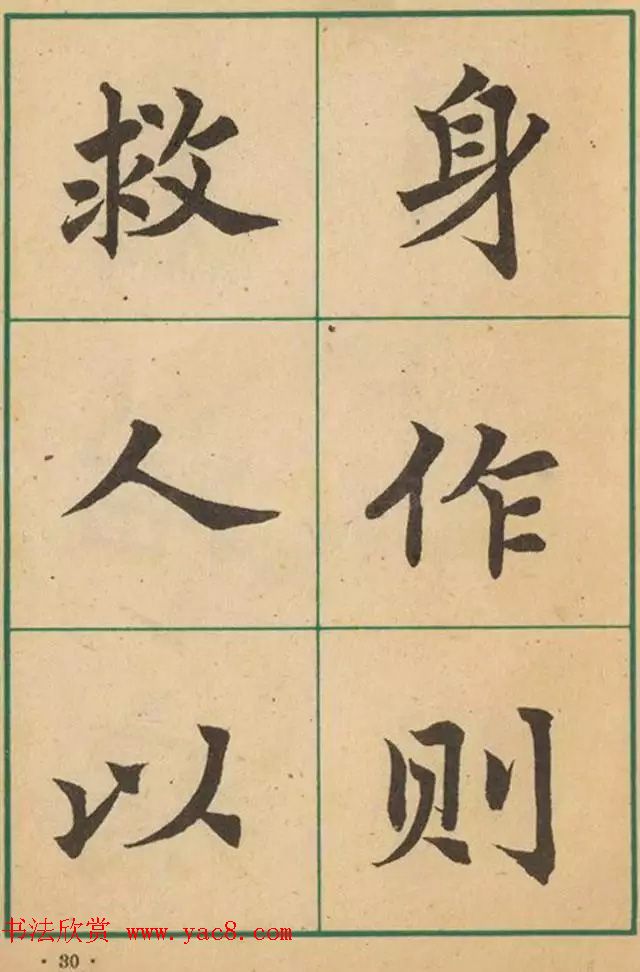 救人以
身作则
书法欣赏 www.yac8.com
·30·